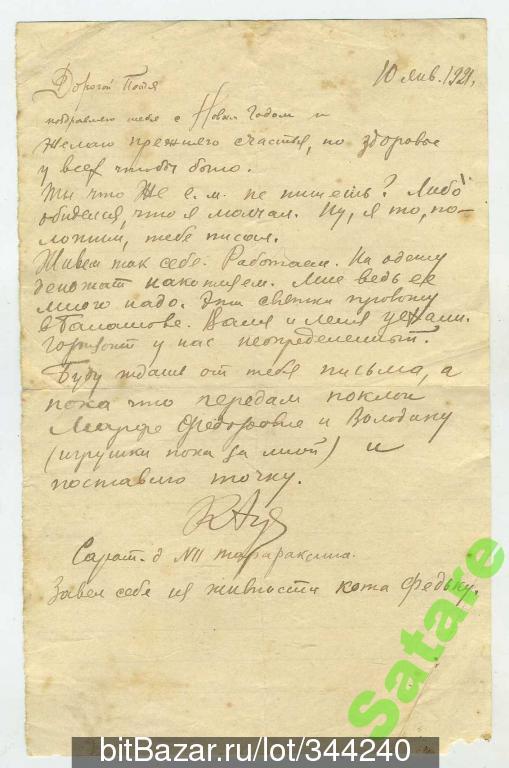 10 янв. 1921.
Дорогой Петя
поздравляю тебя с Новым годом и
желаю прежнего счастья, но здоровье
у всех чтобы было.
Ты что же е. м. не пишешь? Либо
обиделся, что я молчал. Ну, я то, по-
ложим, тебе писал.
Живем так себе. Работаем. На одежу
деножат накопляем. Мне ведь ее
много надо. Эти святки провожу
в Балашове. Валя и Леля уехали.
горизонт у нас неопределенный.
Буду ждать от тебя письма, а
пока что передам поклон
Федоровне и Володину
(игрушки пока за мной) и
поставлю точку.
Сарат. д №11
Завел себе из живности кота Федьку.
Satare
bitBazar.ru/lot/344240